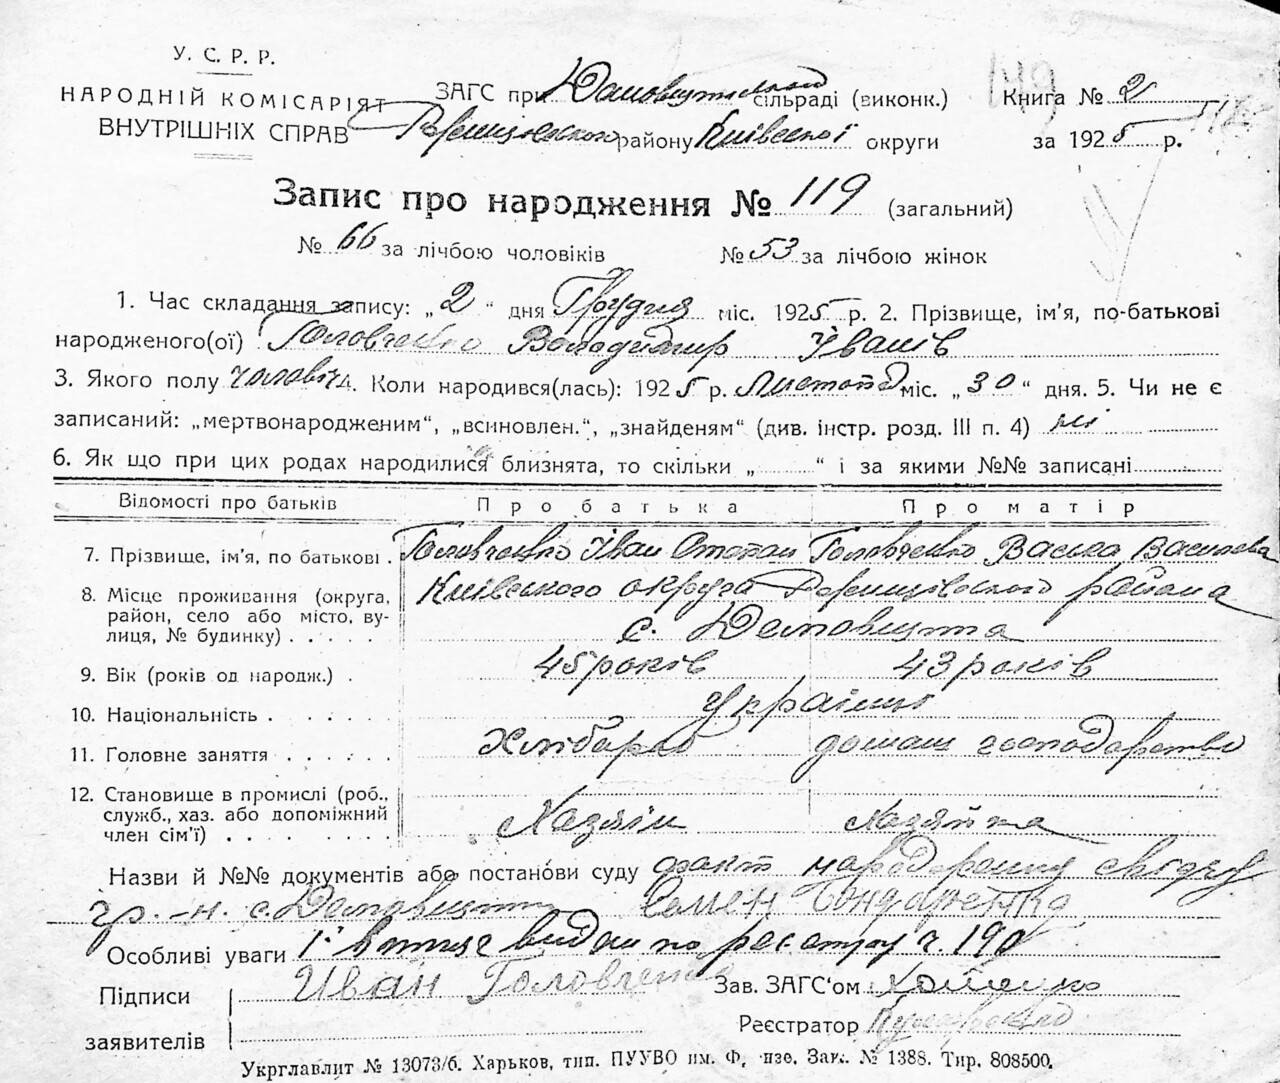 У. С. Р. Р.
НАРОДНІЙ КОМІСАРІЯТ
ВНУТРІШНІХ СПРАВ
ЗАГС при сільраді (виконк.)
району Київської округи
149
Книга № 2
за 1925 р.
Запис про народження № 119 (загальний)
№ 66 за лічбою чоловіків № 53 за лічбою жінок
1. Час складання запису: „2“ дня Грудня міс. 1925 р. 2. Прізвище, ім'я, по-батькові
народженого(ої) Головченко Володимир Іванів
3. Якого полу чоловіч 4. Коли народився(лась): 1925 р. Листопад міс. „30“ дня. 5. Чи не є
записаний: „мертвонародженим“, „всиновлен.“, „знайденям“ (див. інстр. розд. III п. 4) ні
6. Як що при цих родах народилися близнята, то скільки „ “ і за якими №№ записані
Відомості про батьків Про батька Про матір
7. Прізвище, ім'я, по батькові . Головченко Іван Степан Головченко Васька Василева
8. Місце проживання (округа, район, село або місто, вулиця, № будинку) . . . . . Київського округа района
с.
9. Вік (років од народж.) . 45 років 43 років
10. Національність . . . . . . українці
11. Головне заняття . . . . . . Хлібороб домаш господарство
12. Становище в промислі (роб., служб., хаз. або допоміжний член сім'ї) . . . . . . . Хазяїн Хазяйка
Назви й №№ документів або постанови суду факт народження свідчу
гр-н. с. Семен Бондаренко
Особливі уваги 1й витяг видан по реєстру ч. 190
Підписи
заявителів
Иван Головченко
Зав. ЗАГС'ом
Реєстратор
Укрглавлит № 13073/б. Харьков, тип. ПУУВО им. Ф. нзе. Зак. № 1388. Тир. 808500.